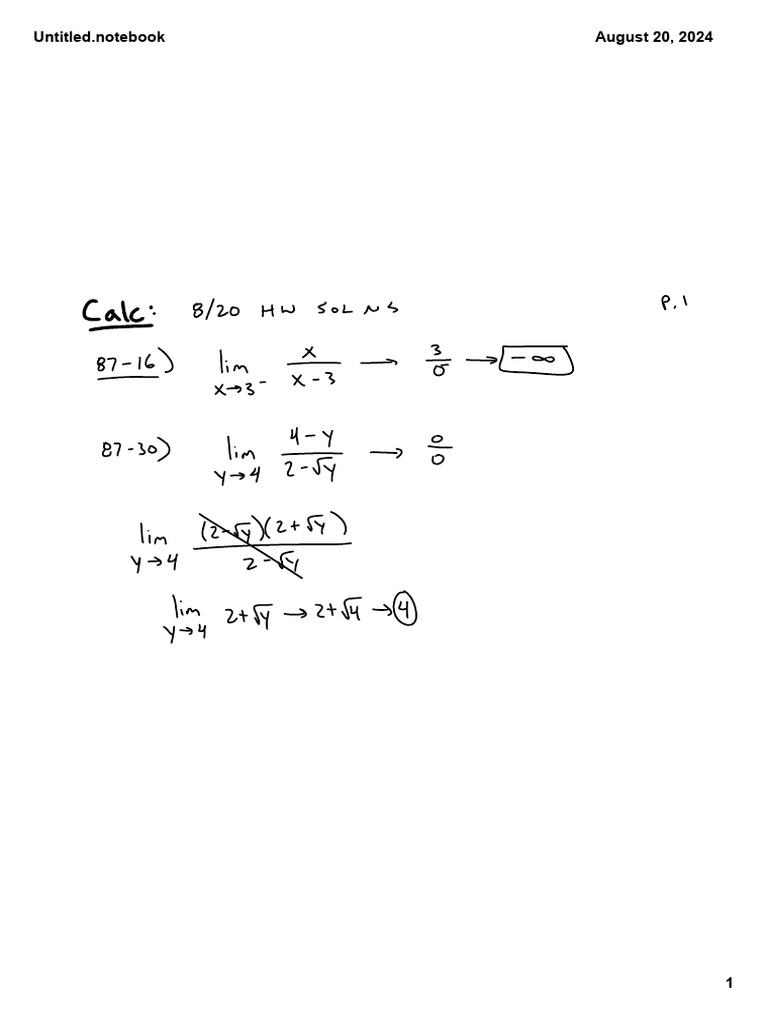 Untitled.notebook August 20, 2024
Calc: 8/20 HW SOLNS P.1
87-16) lim x→3⁻ x/(x-3) → 3/0 → -∞
87-30) lim y→4 (4-y)/(2-√y) → 0/0
lim y→4 (2-√y)(2+√y)/(2-√y)
lim y→4 2+√y → 2+√4 → 4
1